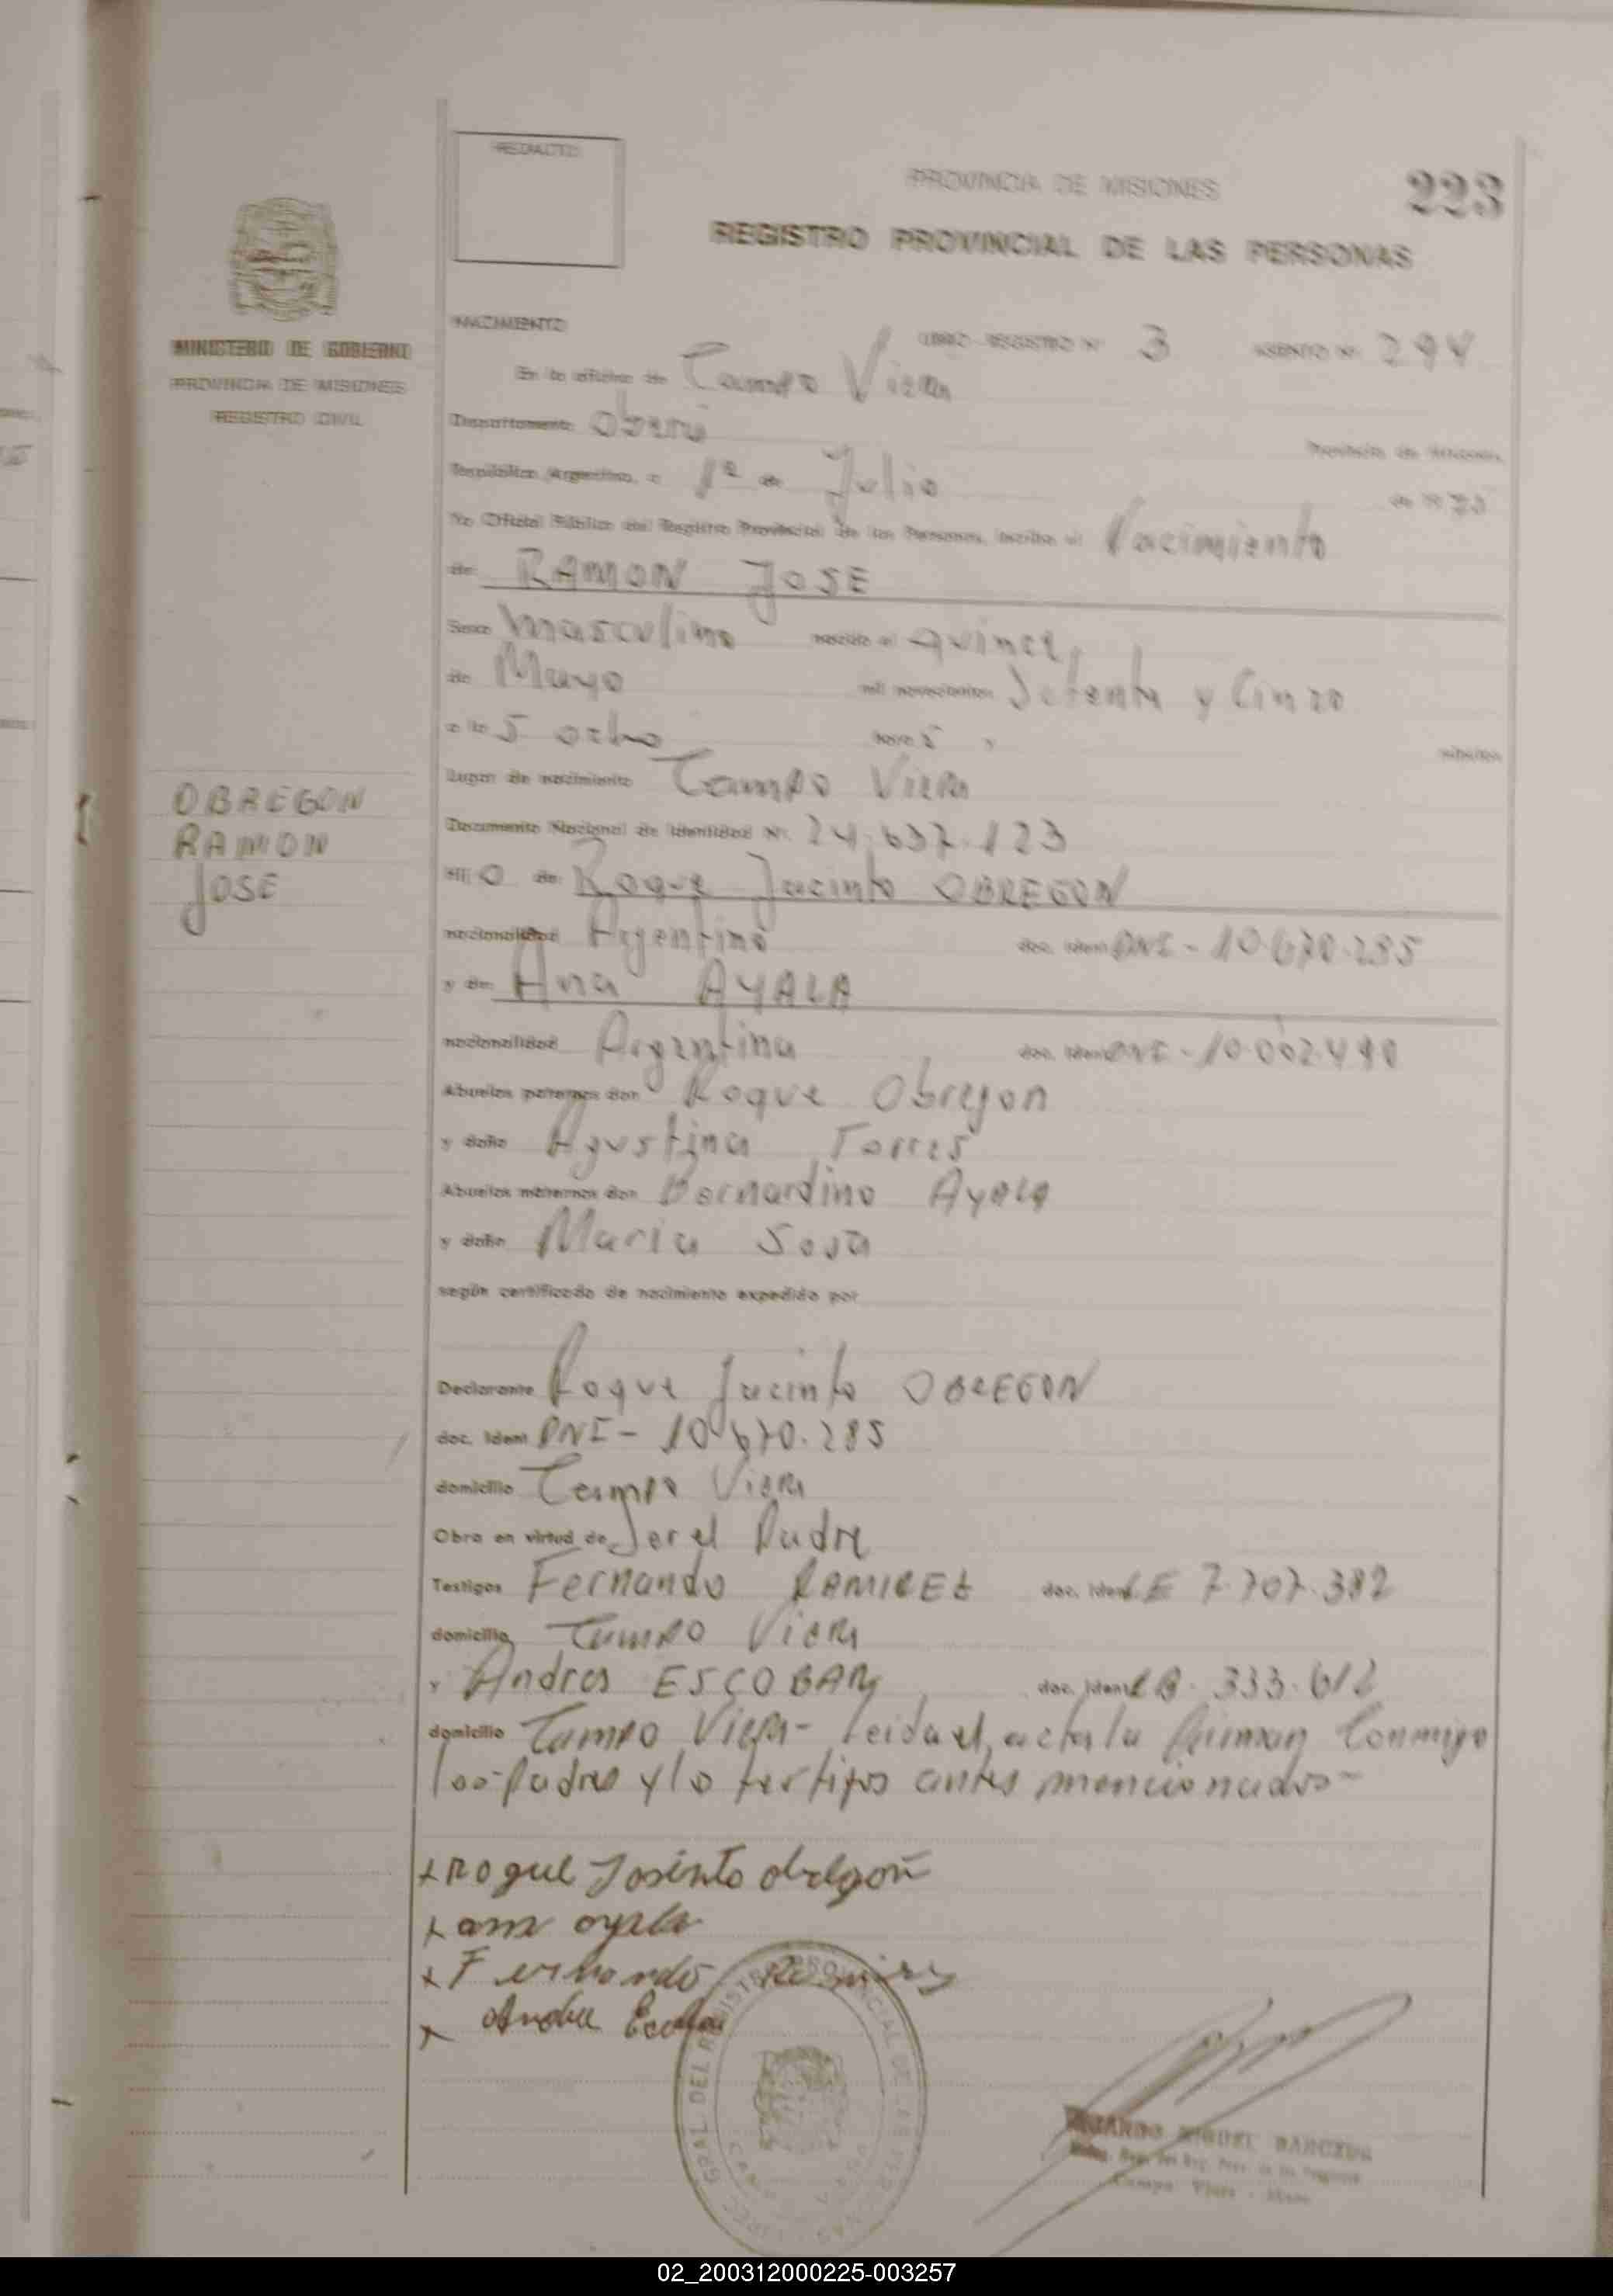 REDACTO:
PROVINCIA DE MISIONES
223
REGISTRO PROVINCIAL DE LAS PERSONAS
MINISTERIO DE GOBIERNO
PROVINCIA DE MISIONES
REGISTRO CIVIL
NACIMIENTO
LIBRO - REGISTRO Nº 3 ASIENTO Nº 294
En la oficina de Campo Viera
Departamento Oberá Provincia de Misiones,
República Argentina, a 1º de Julio de 19
Yo Oficial Público del Registro Provincial de las Personas, inscribo el Nacimiento
de RAMON JOSE
Sexo Masculino nacido el Quince,
de Mayo mil novecientos Setenta y Cinco
a las ocho horas y minutos
Lugar de nacimiento Campo Viera
Documento Nacional de Identidad Nº. 24.637.123
OBREGON
RAMON
JOSE
HIJO de Roque Jacinto OBREGON
nacionalidad Argentino doc. Ident DNI - 10.670.285
y de Ana AYALA
nacionalidad Argentina doc. Ident DNI - 10.002.490
Abuelos paternos don Roque Obregon
y doña Agustina Torres
Abuelos maternos don Bernardino Ayala
y doña Maria Sosa
según certificado de nacimiento expedido por
Declarante Roque Jacinto OBREGON
doc. Ident DNI - 10.670.285
domicilio Campo Viera
Obra en virtud de Ser el Padre
Testigos Fernando RAMIREZ doc. Ident LE 7.707.382
domicilio Campo Viera
y Andres ESCOBAR doc. Ident 333.612
domicilio Campo Viera - Leida el acta la firman Conmigo
los Padres y lo testigos antes mencionados -
+ Roque Josinto obregon
+ ana ayala
+ Fernando Ramires
+ Andre Escobar
MIGUEL
Campo Viera - Mnes
02_200312000225-003257